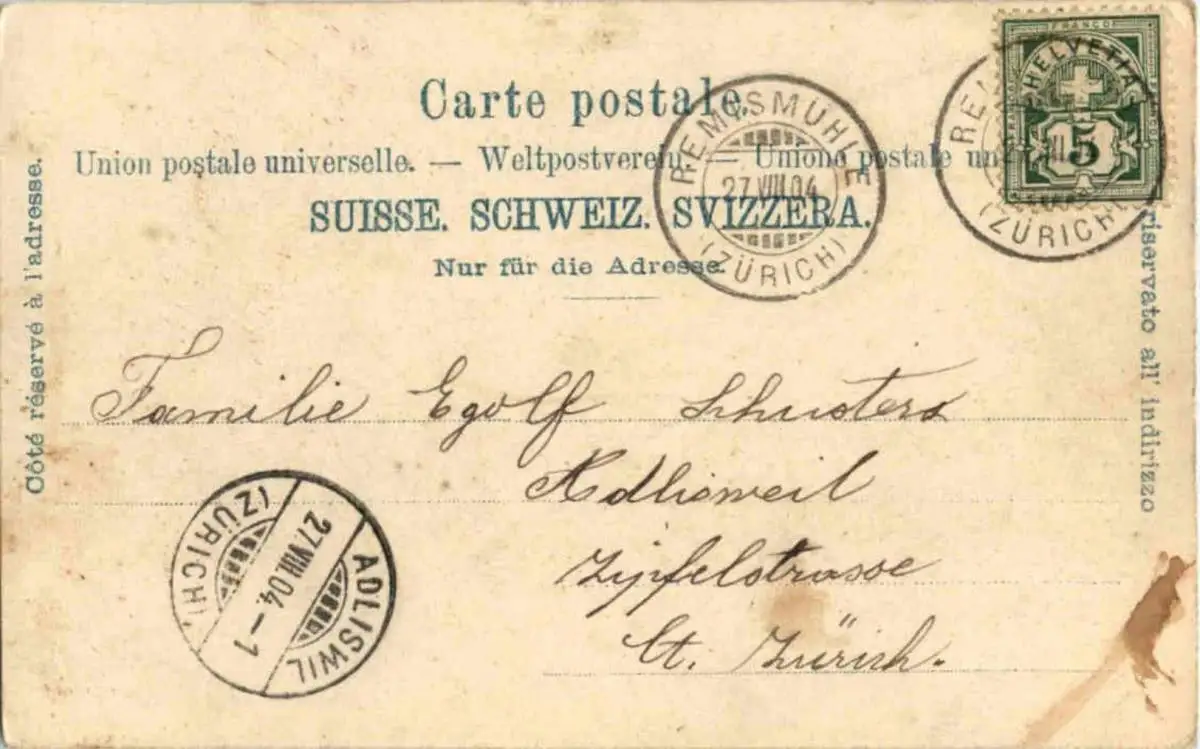 FRANCO
HELVETIA
5
Carte postale.
Union postale universelle. — Weltpostverein. — Unione postale un
SUISSE. SCHWEIZ. SVIZZERA.
Nur für die Adresse.
Côté réservé à l'adresse.
riservato all' indirizzo
REMISMÜHLE
27.VIII.04
(ZÜRICH)
REM
VIII
(ZÜRICH)
Familie Egolf Schusters
Adlisweil
Zipfelstrasse
Ct. Zürich.
ADLISWIL
27.VIII.04.-1
(ZÜRICH)